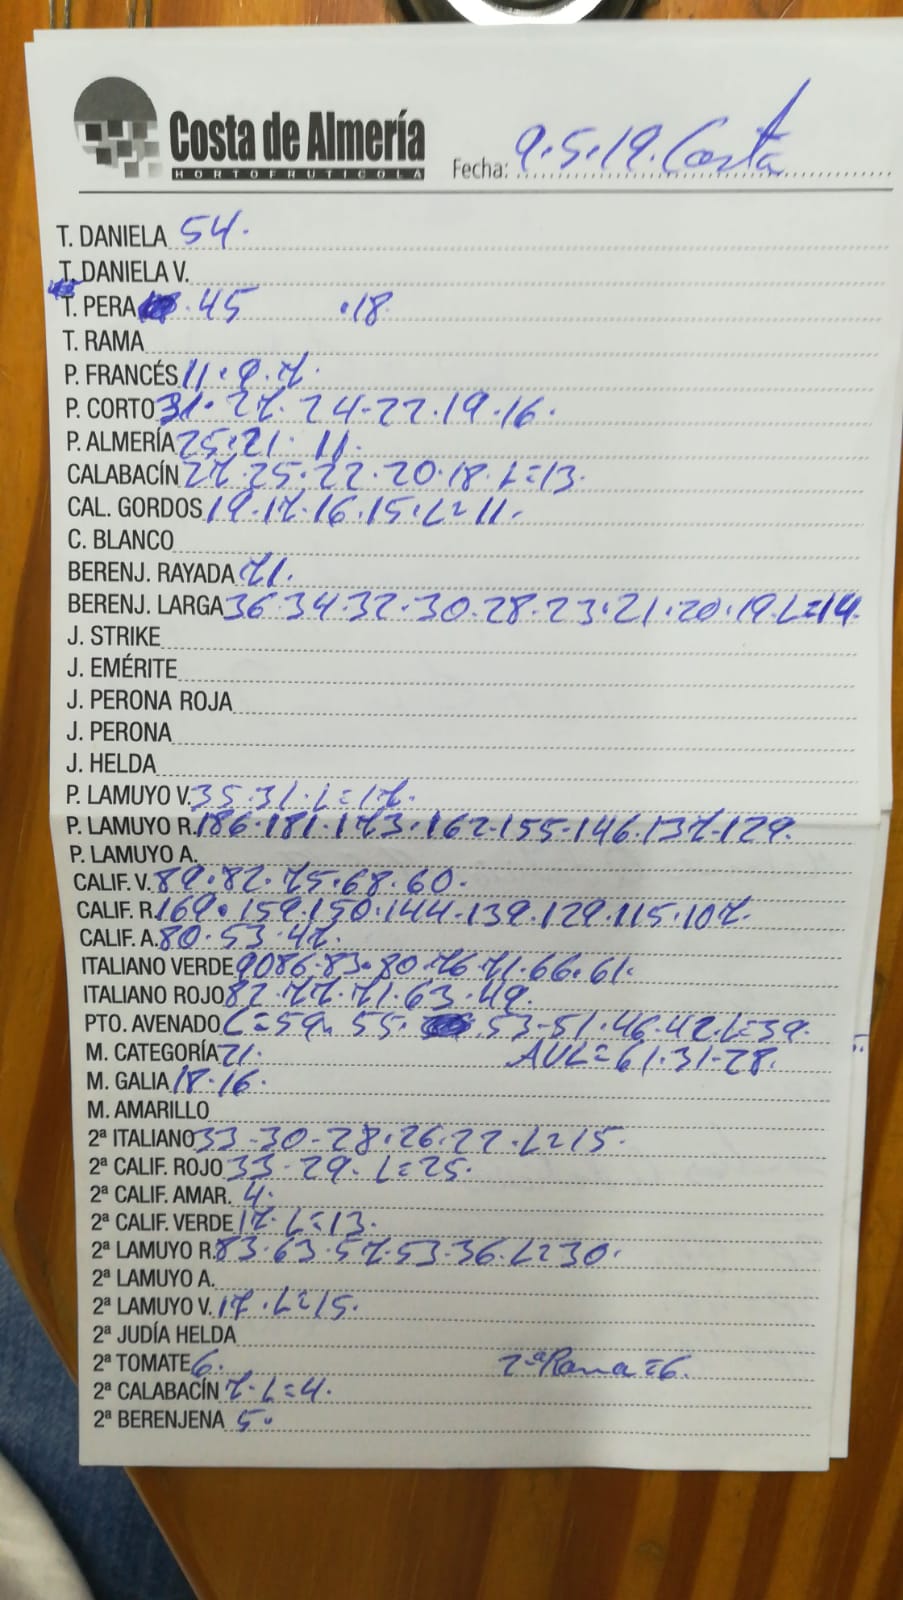 Costa de Almería
HORTOFRUTICOLA
Fecha: 9.5.19. Costa
T. DANIELA 54.
T. DANIELA V.
T. PERA . 45 .18
T. RAMA
P. FRANCÉS 11.9.7.
P. CORTO 31.27.24-22.19.16.
P. ALMERÍA 25.21. 11.
CALABACÍN 27.25.22.20.18.L=13.
CAL. GORDOS 19.17.16.15.L=11.
C. BLANCO
BERENJ. RAYADA 71.
BERENJ. LARGA 36.34.32.30.28-23.21.20.19.L=14.
J. STRIKE
J. EMÉRITE
J. PERONA ROJA
J. PERONA
J. HELDA
P. LAMUYO V. 35.31.L=17.
P. LAMUYO R. 186.181.173.162-155-146.137-129.
P. LAMUYO A.
CALIF. V. 89.82.75.68.60.
CALIF. R. 169.159.150.144-139.129.115.107.
CALIF. A. 80.53.47.
ITALIANO VERDE 90 86.83.80.76.71.66.61.
ITALIANO ROJO 82.77.71.63.49.
PTO. AVENADO L=59. 55. 53-51.46.42.L=39.
M. CATEGORÍA 21. AVL=61.31-28.
M. GALIA 18.16.
M. AMARILLO
2ª ITALIANO 33-30-28.26.22.L=15.
2ª CALIF. ROJO 33-29.L=25.
2ª CALIF. AMAR. 4.
2ª CALIF. VERDE 17.L=13.
2ª LAMUYO R. 83.63.57.53.36.L=30.
2ª LAMUYO A.
2ª LAMUYO V. 17.L=15.
2ª JUDÍA HELDA
2ª TOMATE 6. 2ªRama=6.
2ª CALABACÍN 7.L=4.
2ª BERENJENA 5.